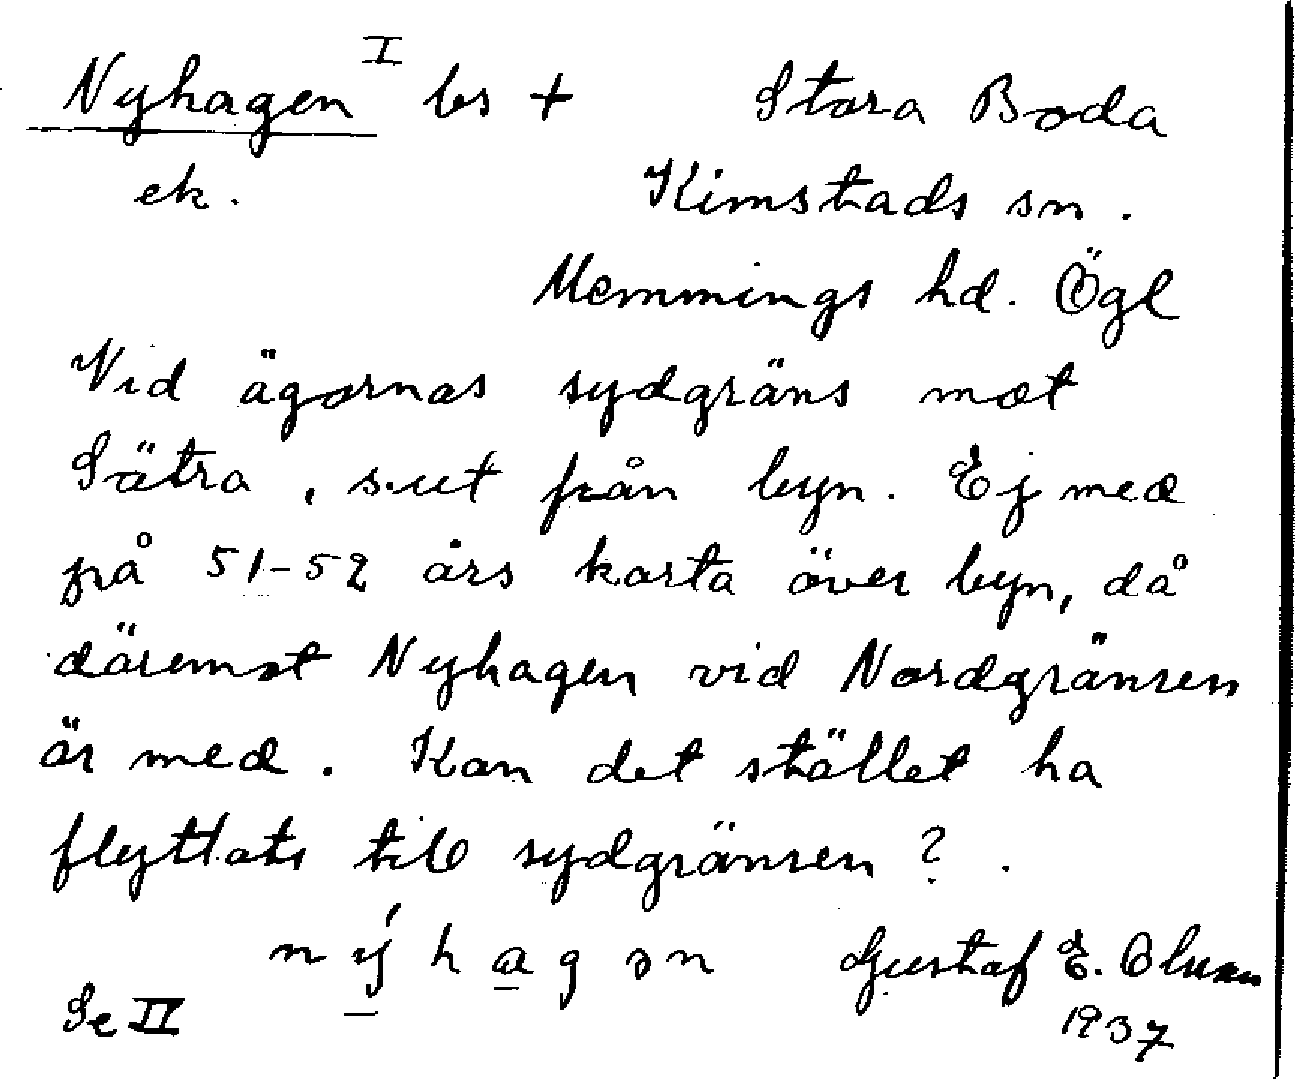 Nyhagen I bs + Stora Boda
ek. Kimstads sn.
Memmings hd. Ögl
Vid ägornas sydgräns mot
Sätra, s.ut från byn. Ej med
på 51-52 års karta över byn, då
däremot Nyhagen vid Nordgränsen
är med. Kan det stället ha
flyttats till sydgränsen?
n ý h a g ə n Gustaf E. Olsson
Se II 1937